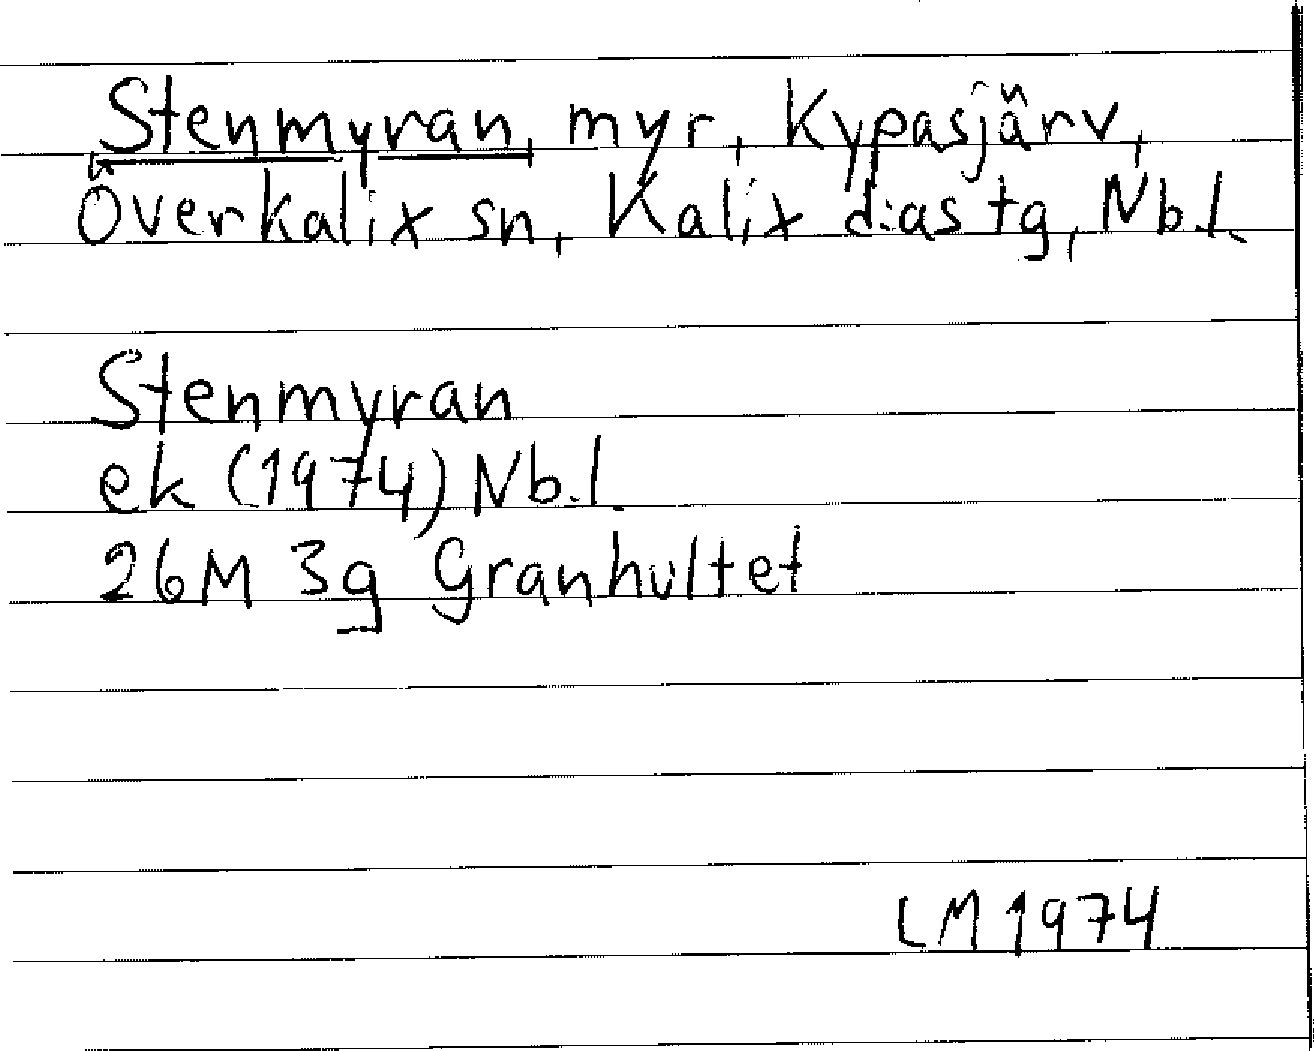 Stenmyran, myr, Kypasjärv,
Överkalix sn, Kalix dias tg, Nb.l.
Stenmyran
ek (1974) Nb.l.
26M 3g Granhultet
LM 1974